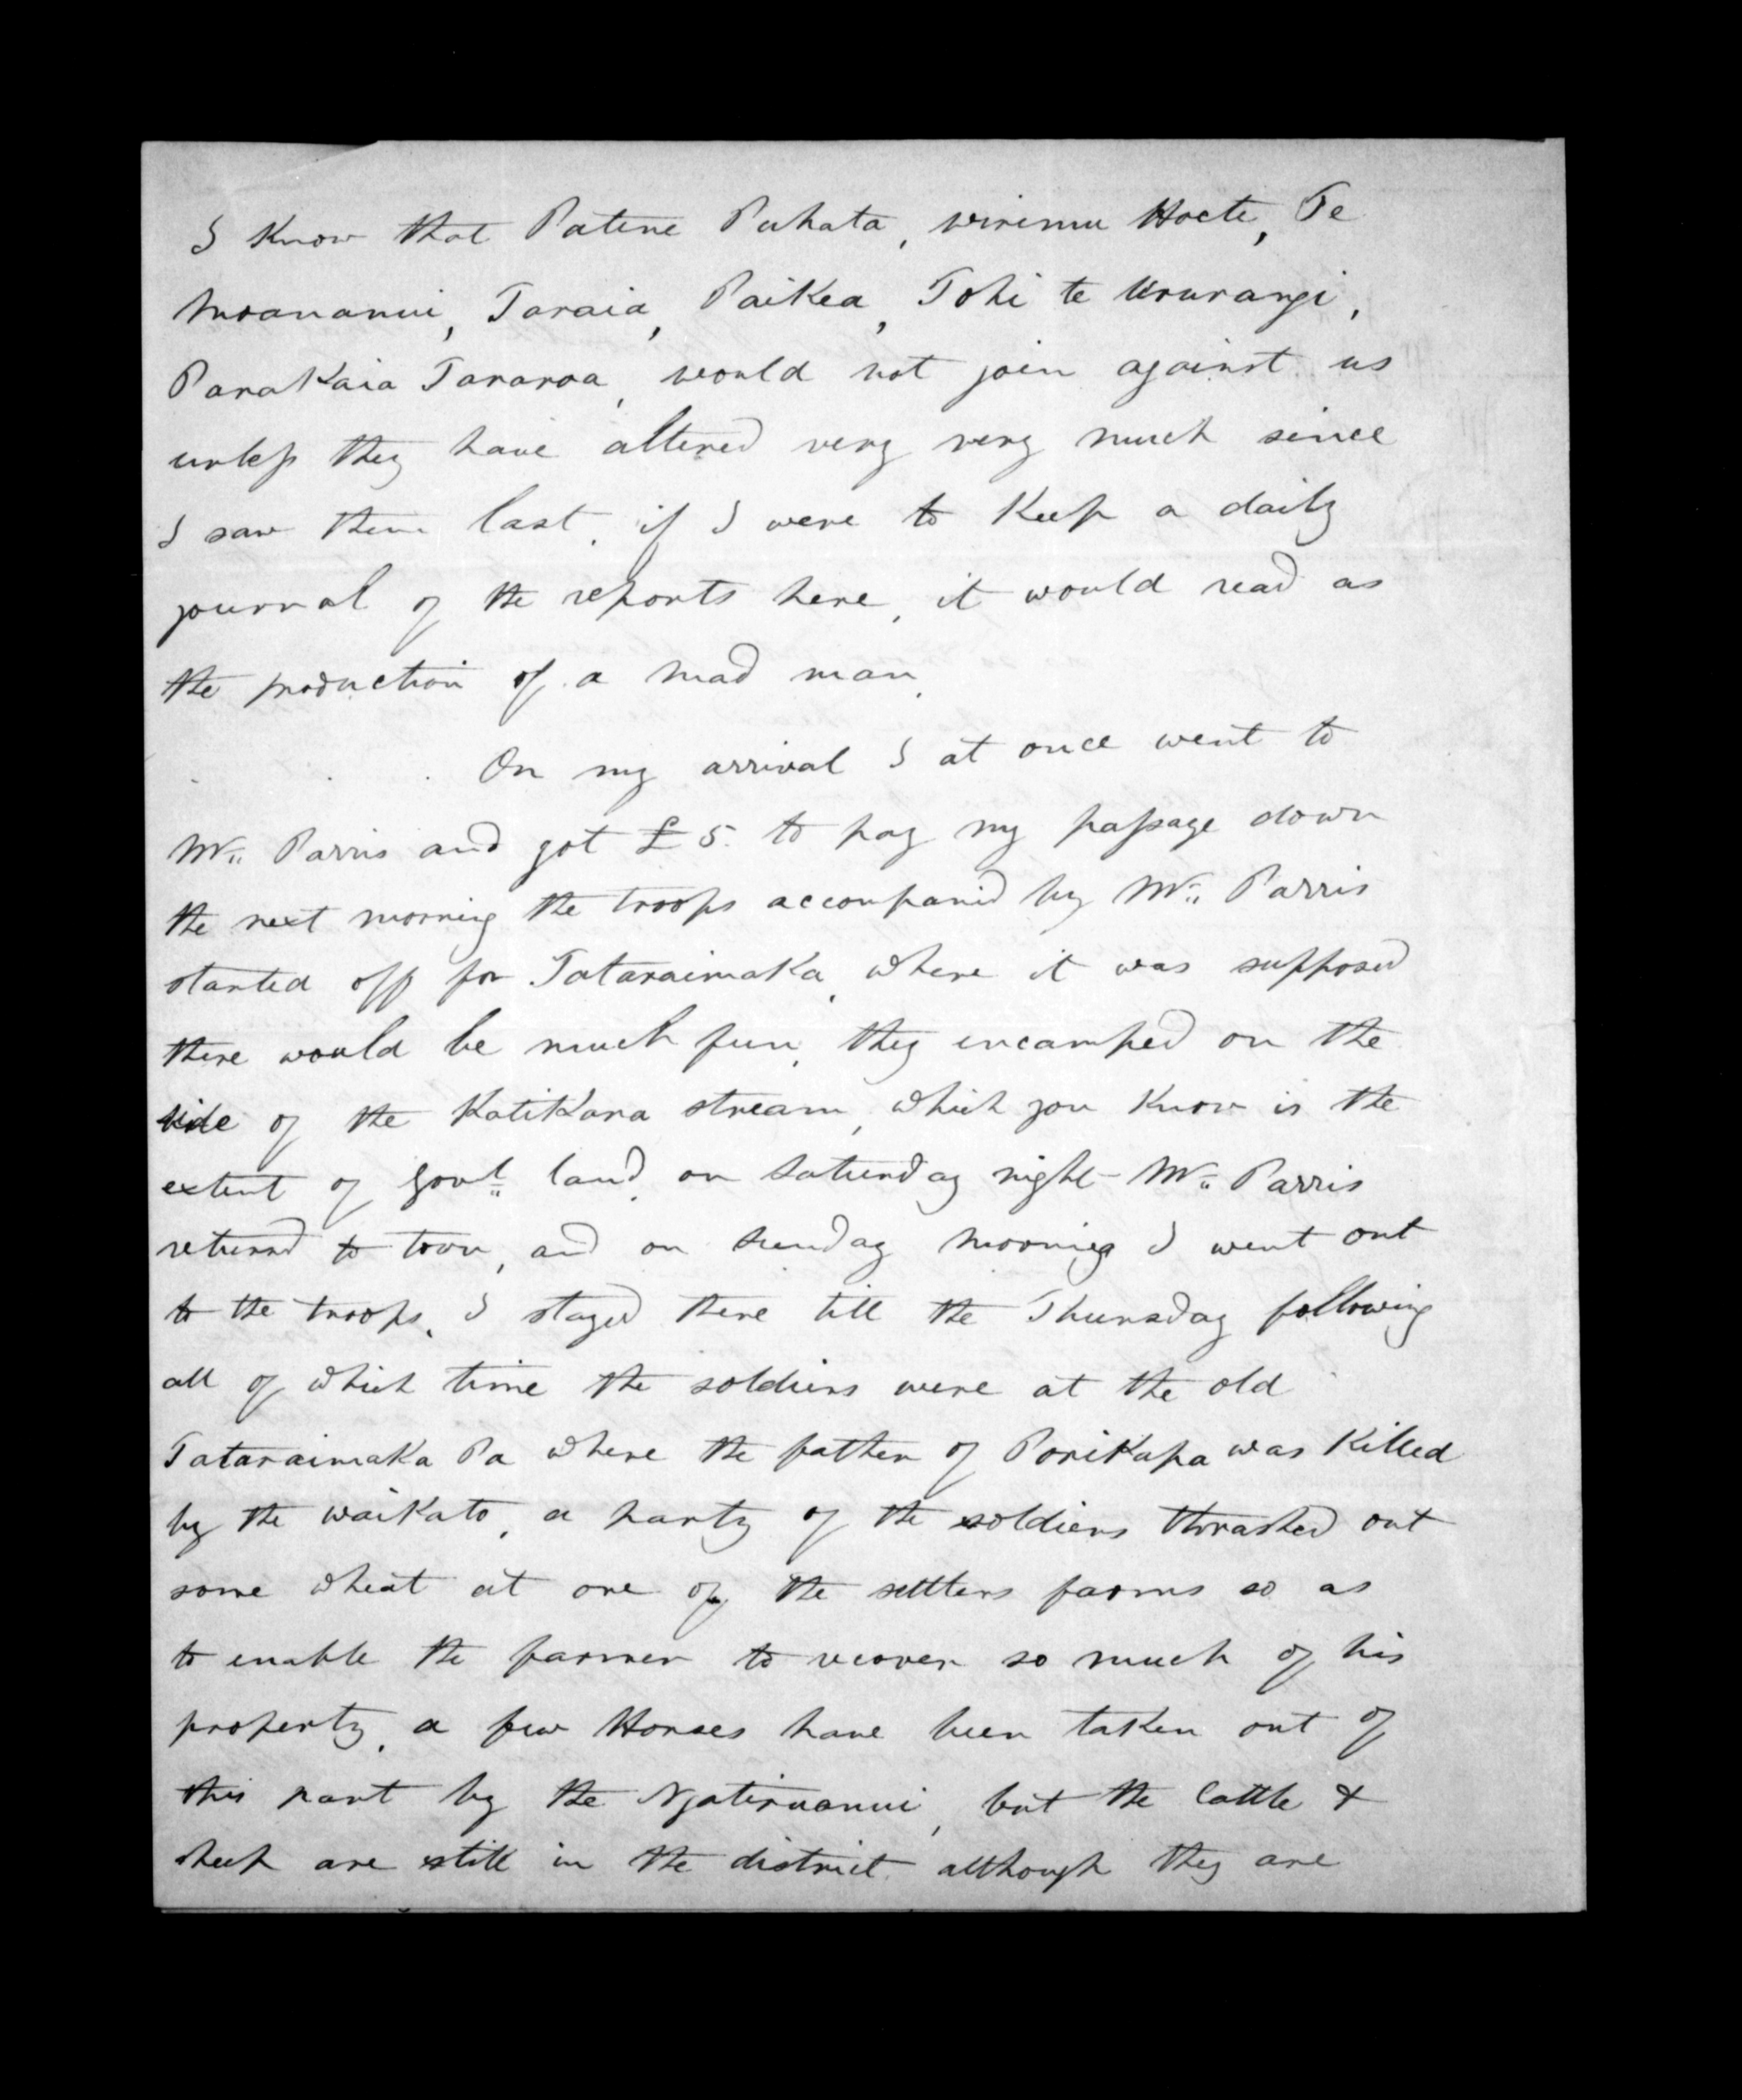 I know that Patene Puhata, wiremu Hoete, Te
Moananui, Taraia, Paikea, Tohi te Ururangi,
Parakaia Tararoa, would not join against us
unless they have altered very very much since
I saw them last. if I were to Keep a daily
journal of the reports here, it would read as
the production of a mad man.
On my arrival I at once went to
Mr. Parris and got £5. to pay my passage down
the next morning the troops accompanid by Mr. Parris
started off for Tataraimaka, where it was supposed
there would be much fun, they encamped on the
side of the Katikara stream, which you Know is the
extent of Govt. land. on Saturday night - Mr. Parris
returnd to town, and on Sunday morning I went out
to the troops. I stayed there till the Thursday following
all of which time the soldiers were at the old
Tataraimaka Pa where the father of Porikapa was Killed
by the Waikato, a party of the soldiers thrashed out
some wheat at one of the settlers farms so as
to enable the farmer to recover so much of his
property. a few Horses have been taken out of
this part by the Ngatiruanui, but the Cattle &
sheep are still in the district. although they are